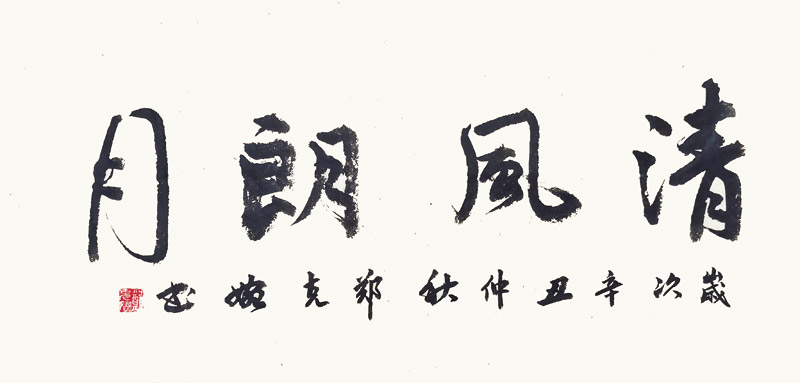 清風朗月
歲次辛丑仲秋 郑克 书